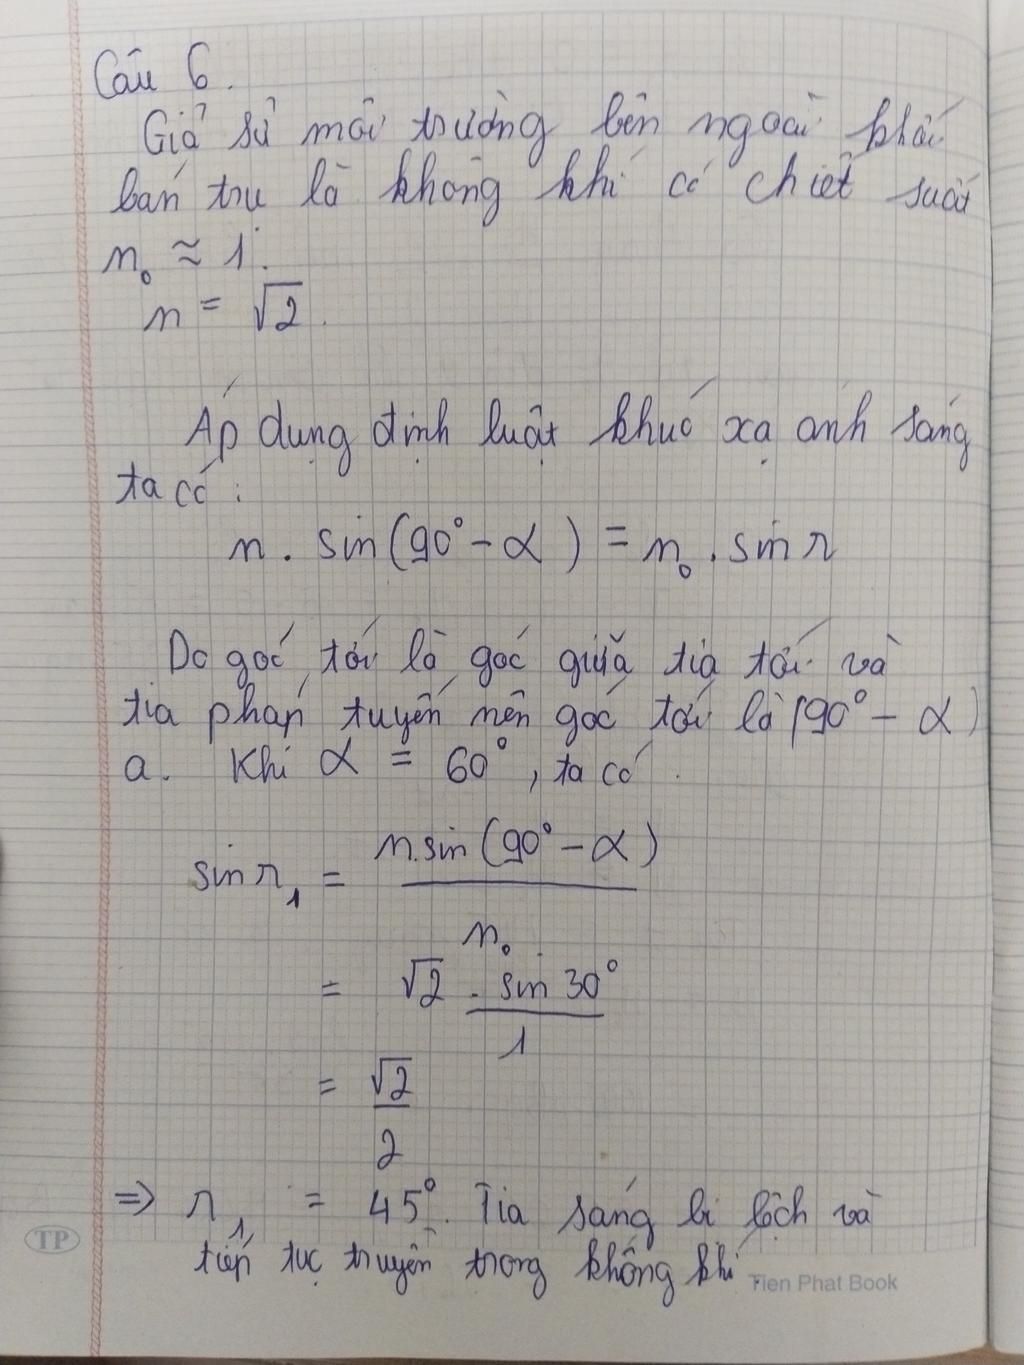 Câu 6.
Giả sử môi trường bên ngoài khối
bán trụ là không khí có chiết suất
n₀ ≈ 1.
n = √2.
Áp dụng định luật khúc xạ ánh sáng
ta có :
n . sin(90° - α) = n₀ . sin r
Do góc tới là góc giữa tia tới và
tia pháp tuyến nên góc tới là (90° - α)
a. Khi α = 60°, ta có
sin r₁ = n.sin(90° - α) / n₀
= √2 . sin 30° / 1
= √2 / 2
⇒ r₁ = 45°. Tia sáng bị lệch và
tiếp tục truyền trong không khí.
TP
Tien Phat Book